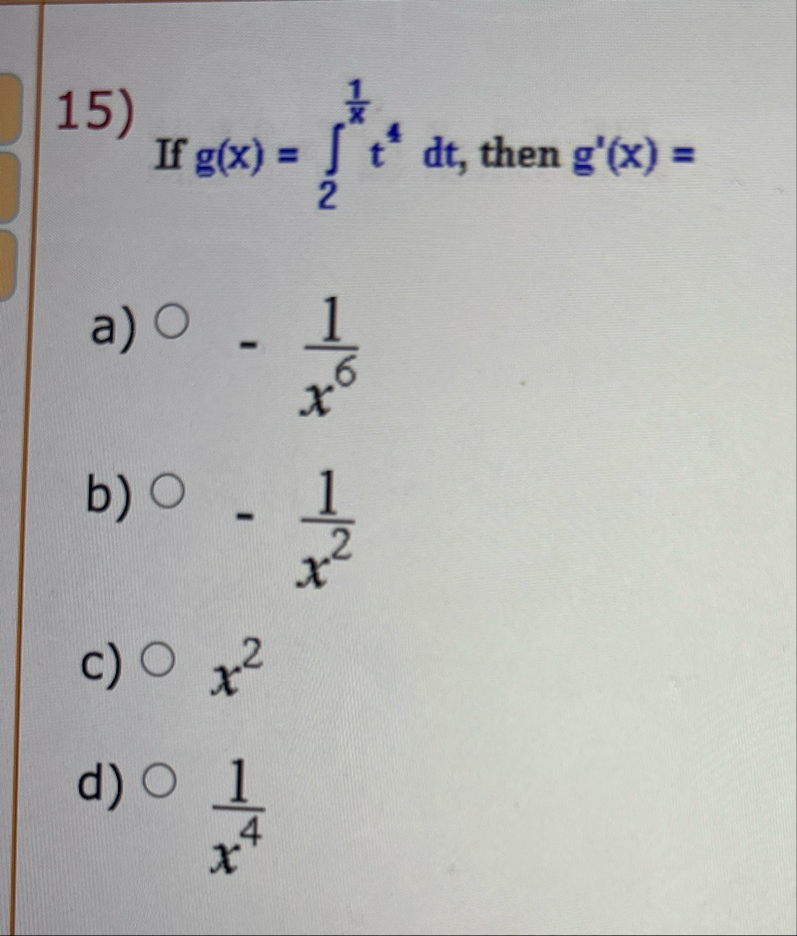 15) If g(x) = ∫₂^(1/x) t⁴ dt, then g'(x) =
a) ○ - 1/x⁶
b) ○ - 1/x²
c) ○ x²
d) ○ 1/x⁴